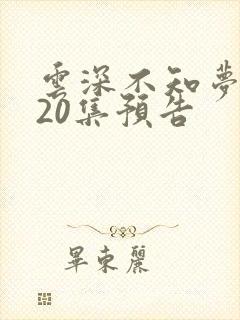 雲深不知夢
20集預告
畢東麗